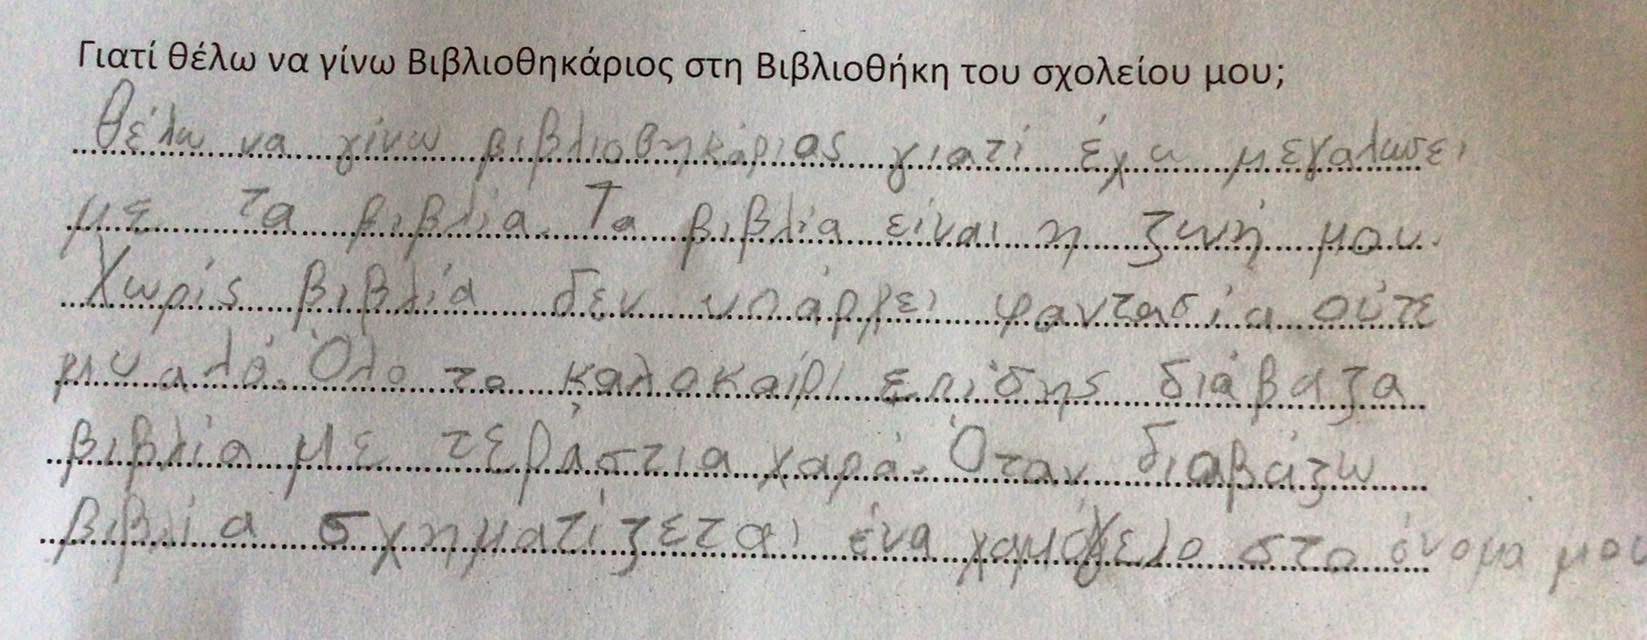 Γιατί θέλω να γίνω Βιβλιοθηκάριος στη Βιβλιοθήκη του σχολείου μου;
Θέλω να γίνω βιβλιοθηκάριος γιατί έχω μεγαλώσει
με τα βιβλία. Τα βιβλία είναι η ζωή μου.
Χωρίς βιβλία δεν υπάρχει φαντασία ούτε
μυαλό. Όλο το καλοκαίρι επίσης διάβαζα
βιβλία με τεράστια χαρά. Όταν διαβάζω
βιβλία σχηματίζεται ένα χαμόγελο στο όνομα μου